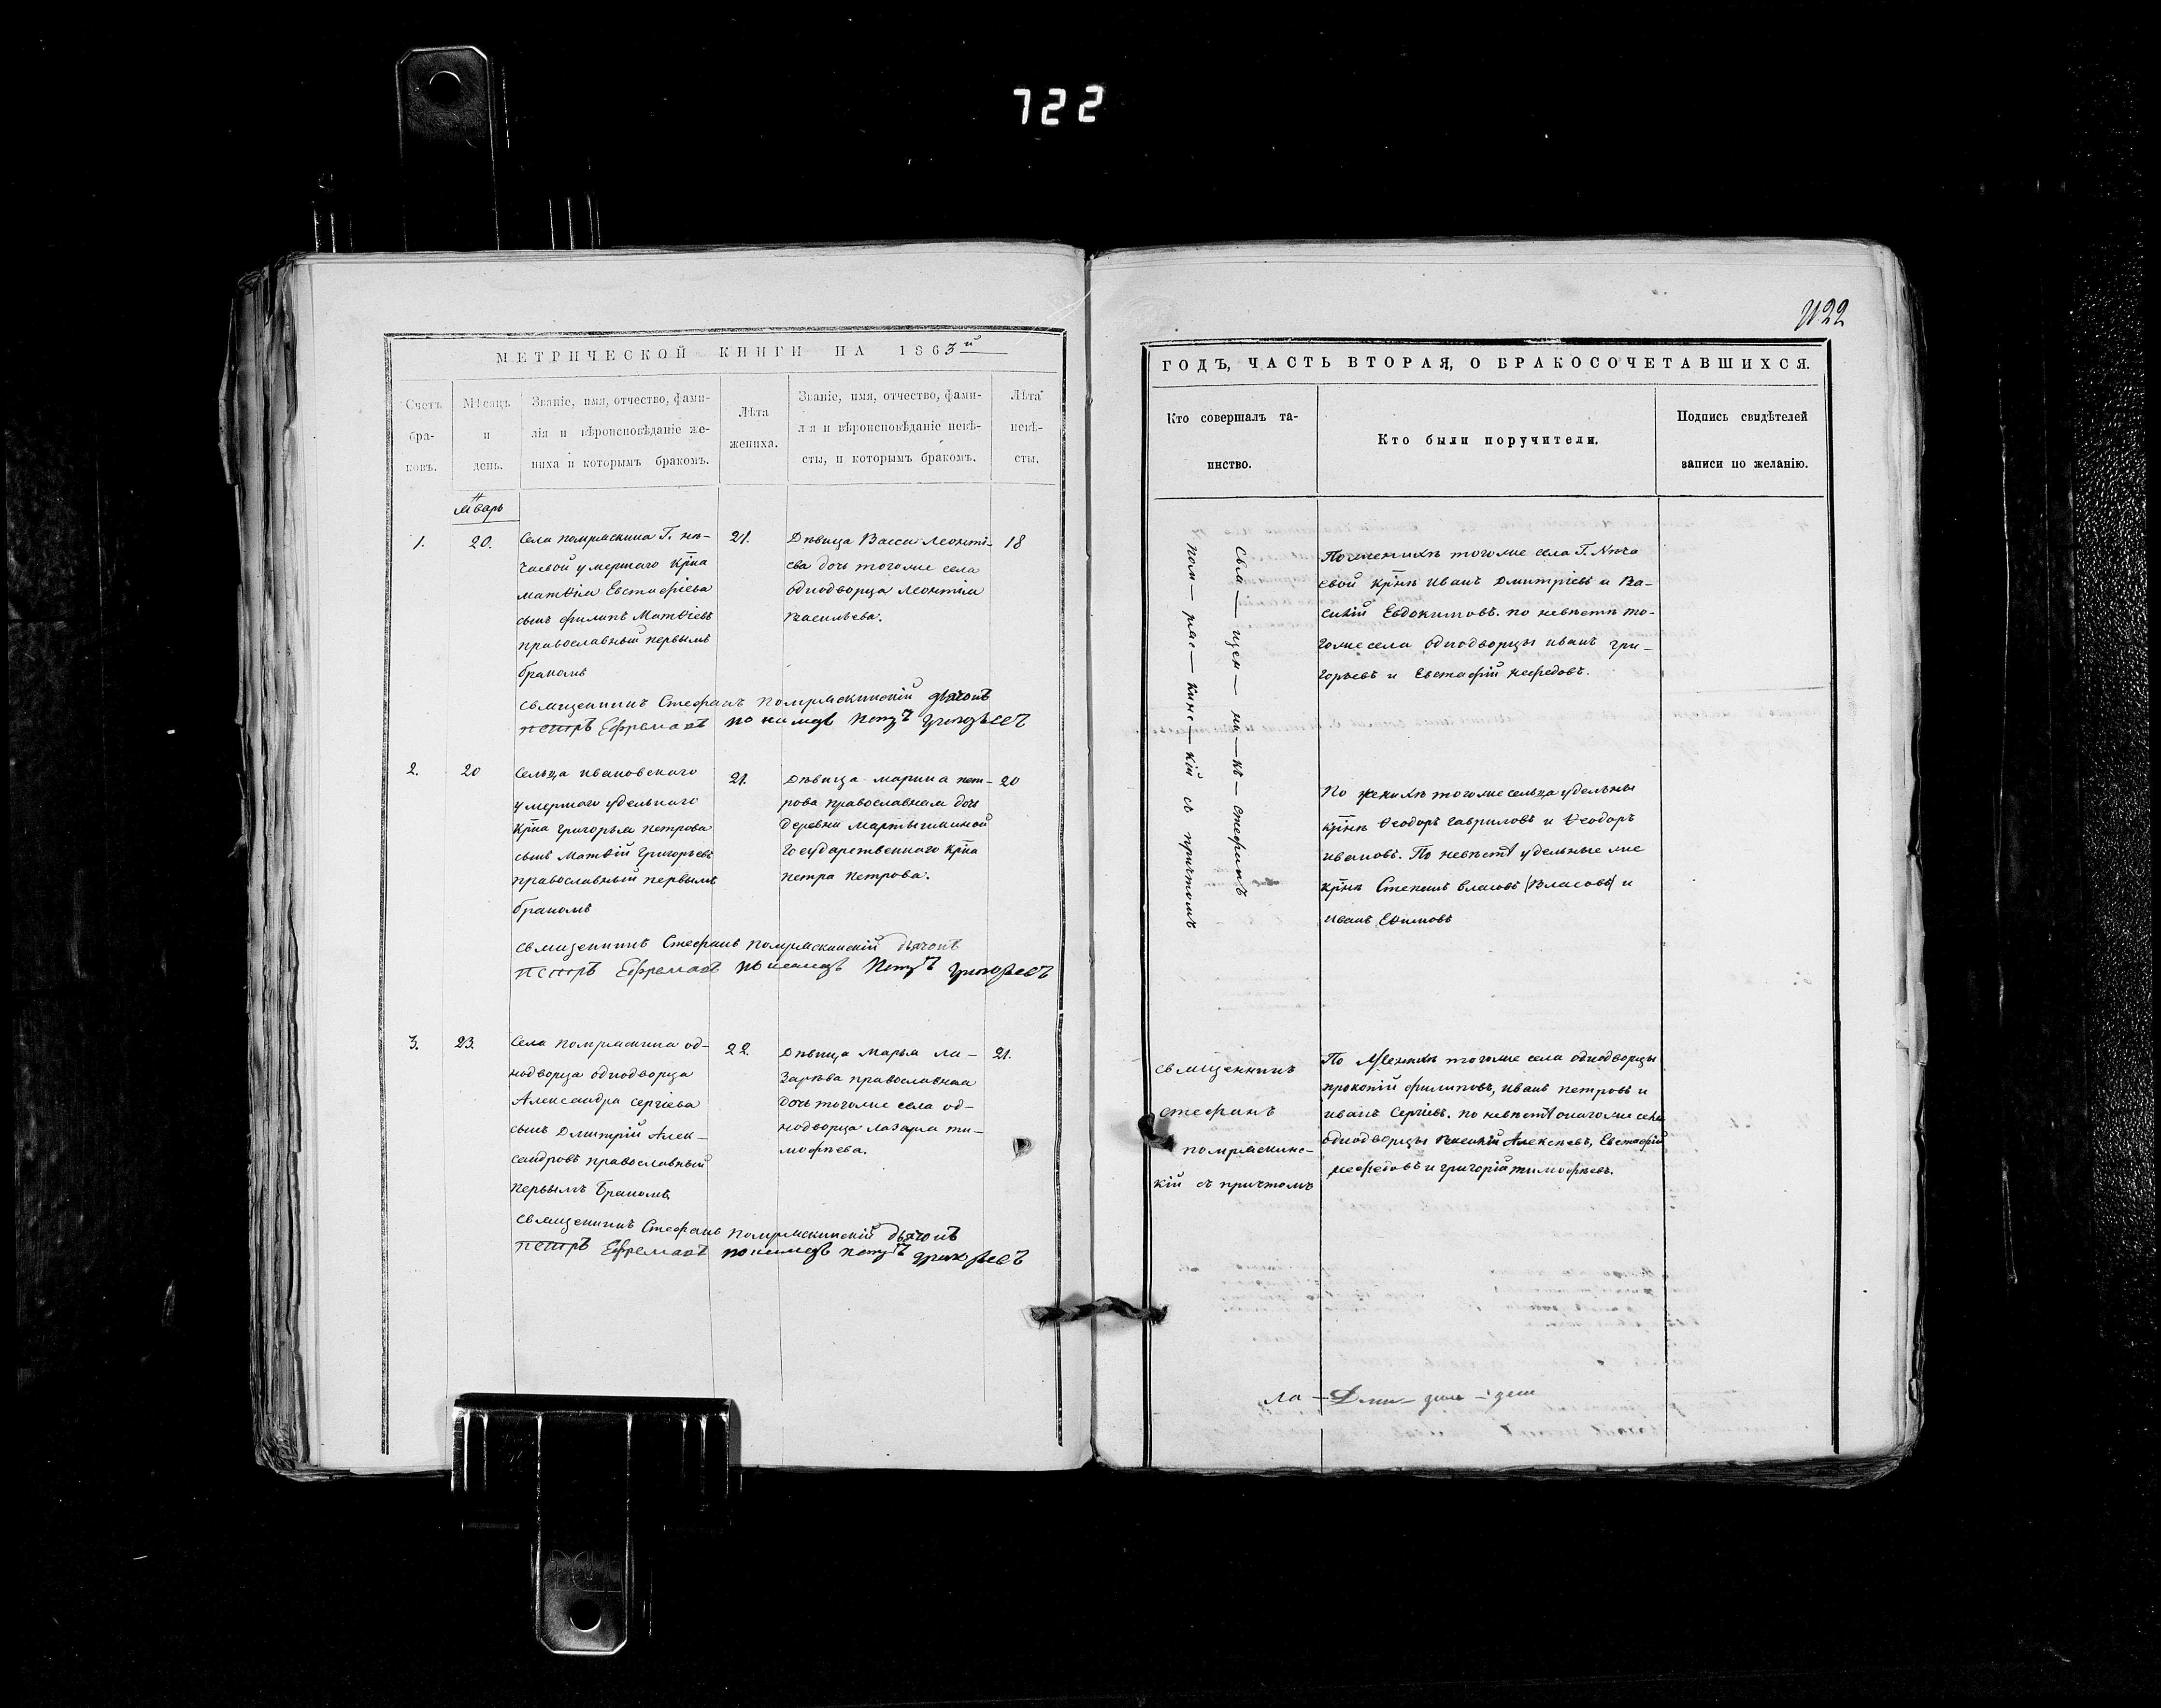 722
МЕТРИЧЕСКОЙ КНИГИ НА 1863й
Счетъ бра- ковъ.
Мѣсяцъ и день.
Званіе, имя, отчество, фами-
лія и вѣроисповѣданіе же-
ниха и которымъ бракомъ.
Лѣта жениха.
Званіе, имя, отчество, фами-
лія и вѣроисповѣданіе невѣ-
сты, и которымъ бракомъ.
Лѣта невѣ- сты.
1.
20.
Села помряскина Г. не-
чаевой умершаго крⷭ҇на
матѳія Евстафіева
сынъ филипъ Матѳіевъ
православный первымъ
бракомъ
21.
Дѣвица Васса Леонті-
ева дочь тогоже села
однодворца Леонтія
Васильева.
18
священникъ Стефанъ Помряскинскій дьячокъ
петръ Ефремовъ пономарь Петръ Григорьевъ
2.
20
Сельца ивановскаго
умершаго удельнаго
крⷭ҇на григорья петрова
сынъ Матѳій Григорьевъ
православный первымъ
бракомъ
21.
Дѣвица марина пет-
рова православная дочь
деревни мартышкиной
государственнаго крⷭ҇на
петра петрова.
20
священникъ Стефанъ помряскинскій дьячокъ
петръ Ефремовъ пономарь Петръ григорьевъ
3.
23.
Села помряскина од-
нодворца однодворца
Александра сергіева
сынъ Дмитрій Алек-
сандровъ православный
первымъ бракомъ
22.
Дѣвица марья ла-
зарева православная
дочь тогоже села од-
нодворца лазаря ти-
мофѣева.
21.
священникъ Стефанъ помряскинскій дьячокъ
петръ Ефремовъ пономарь петръ григорьевъ
ГОДЪ, ЧАСТЬ ВТОРАЯ, О БРАКОСОЧЕТАВШИХСЯ.
Кто совершалъ та-
инство.
Кто были поручители.
Подпись свидѣтелей
записи по желанію.
Свя—щен—ни—къ—стефанъ
пом—ряс—кинс—кій съ причтомъ
По женихѣ тогоже села Г. Неча
евой крⷭ҇не иванъ дмитріевъ и Ва-
силій Евдокимовъ. по невѣстѣ то-
гоже села однодворцы иванъ гри-
горьевъ и Евстафій нефедовъ.
По женихѣ тогоже сельца удельны
крⷭ҇не Ѳеодоръ гавриловъ и Ѳеодоръ
ивановъ. По невѣстѣ удельные же
крⷭ҇не Степанъ власовъ (Власовъ) и
иванъ Ефимовъ
священникъ
стефанъ
помряскинс-
кій съ причтомъ
По Женихѣ тогоже села однодворцы
прокопій филиповъ, иванъ петровъ и
иванъ Сергіевъ. по невѣстѣ онагоже села
однодворцы Василій Алексѣевъ, Евстафій
нефедовъ и григорій тимофѣевъ.